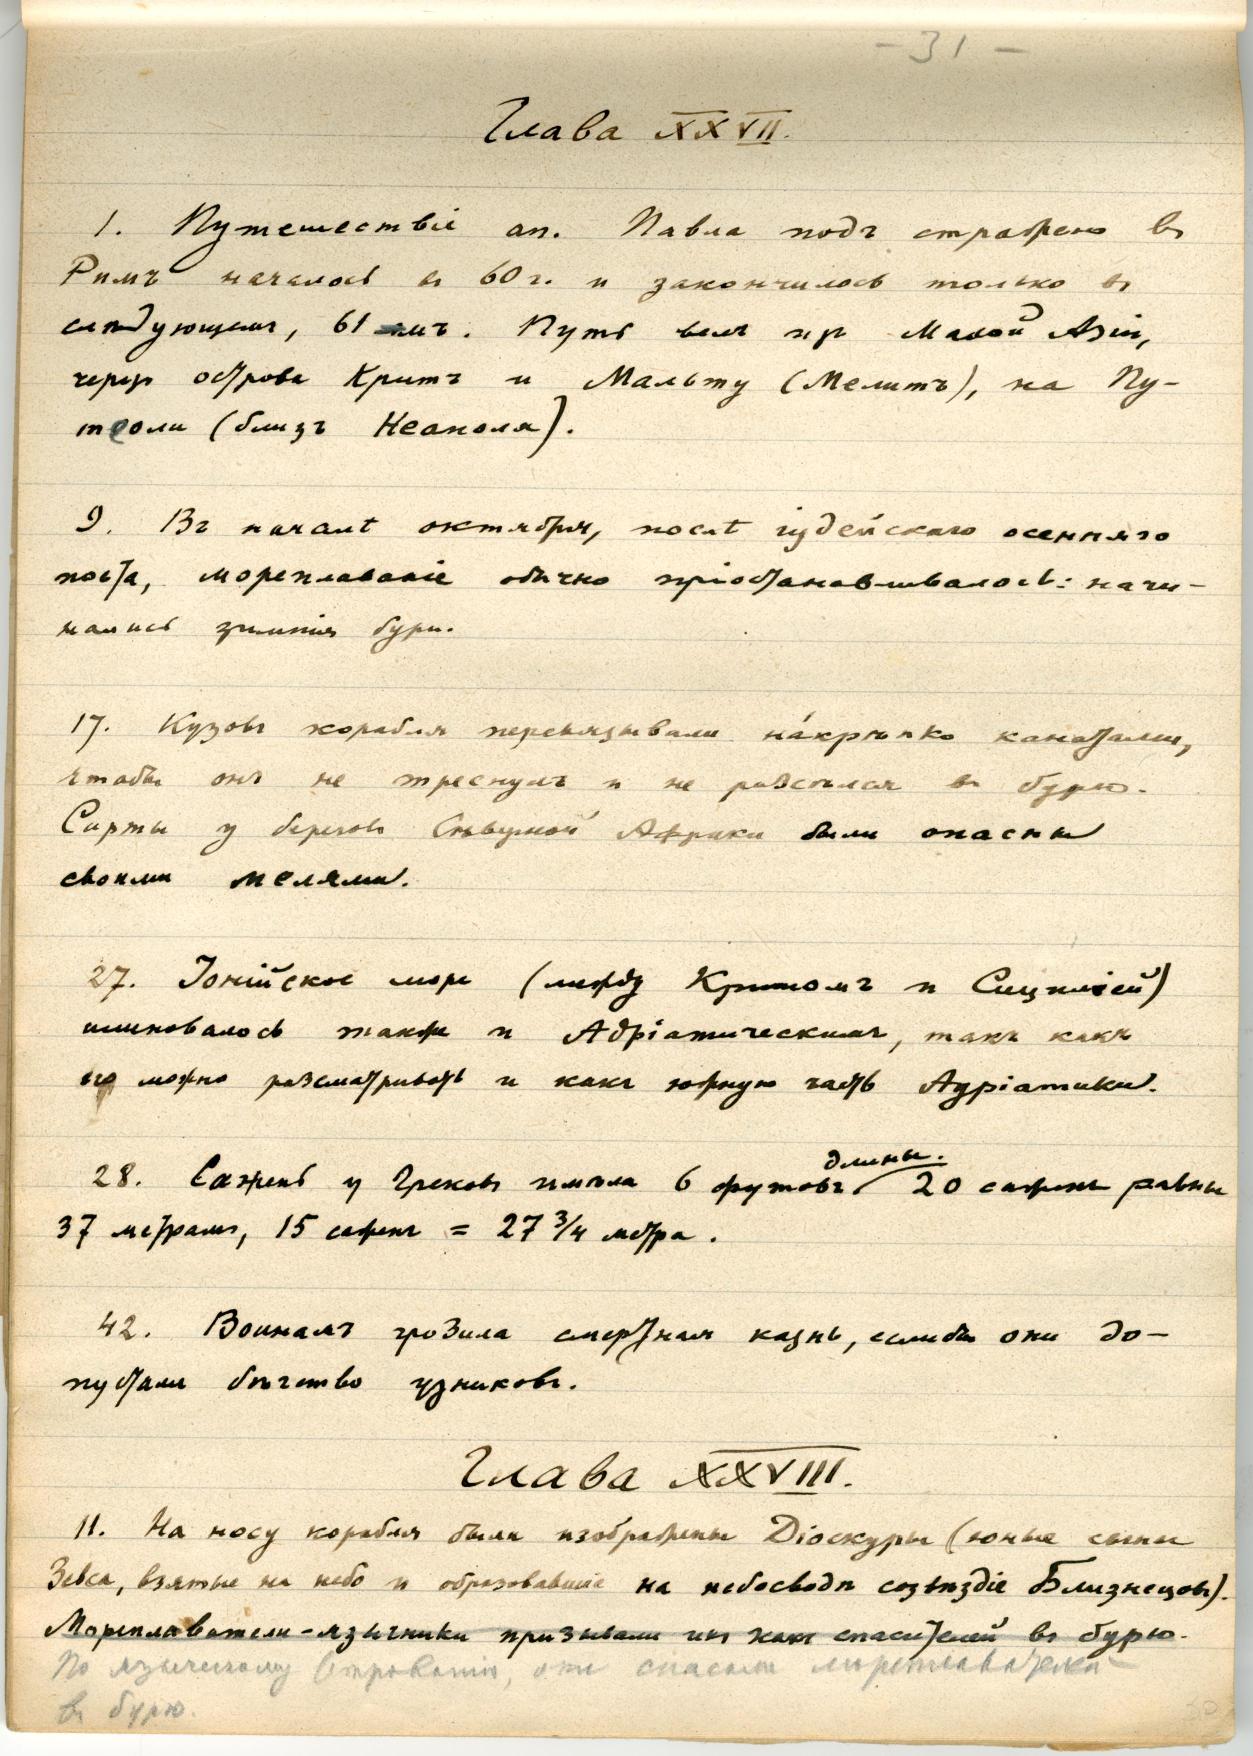 - 31 -
Глава XXVII.
1. Путешествіе ап. Павла подъ стражею въ
Римъ началось въ 60 г. и закончилось только въ
слѣдующемъ, 61 мъ. Путь велъ къ Малой Азіи,
черезъ острова Критъ и Мальту (Мелитъ), на Пу-
теоли (близъ Неаполя).
9. Въ началѣ октября, послѣ іудейскаго осенняго
поста, мореплаваніе обычно пріостанавливалось: начи-
нались зимнія бури.
17. Кузовъ корабля перевязывали накрѣпко канатами,
чтобы онъ не треснулъ и не разсѣлся въ бурю.
Сирты у береговъ Сѣверной Африки были опасны
своими мелями.
27. Іонійское море (между Критомъ и Сициліей)
именовалось также и Адріатическимъ, такъ какъ
его можно разсматривать и какъ южную часть Адріатики.
28. Сажень у Грековъ имѣла 6 футовъ длины. 20 сажень равны
37 метрамъ, 15 сажень = 27 3/4 метра.
42. Воинамъ грозила смертная казнь, еслибы они до-
пустили бѣгство узниковъ.
Глава XXVIII.
11. На носу корабля были изображены Діоскуры (юные сыны
Зевса, взятые на небо и образовавшіе на небосводѣ созвѣздіе Близнецовъ).
Мореплаватели-язычники призывали ихъ какъ спасителей въ бурю.
По языческому вѣрованію, они спасали мореплавателей
въ бурю.